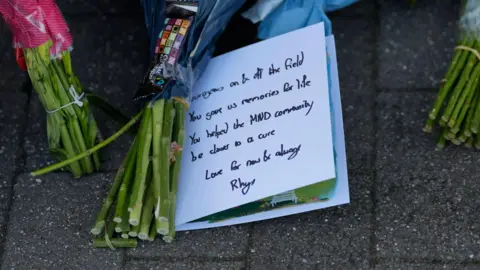 Courageous on & off the field
You gave us memories for life
You helped the MND community
be closer to a cure
Love for now & always
Rhys